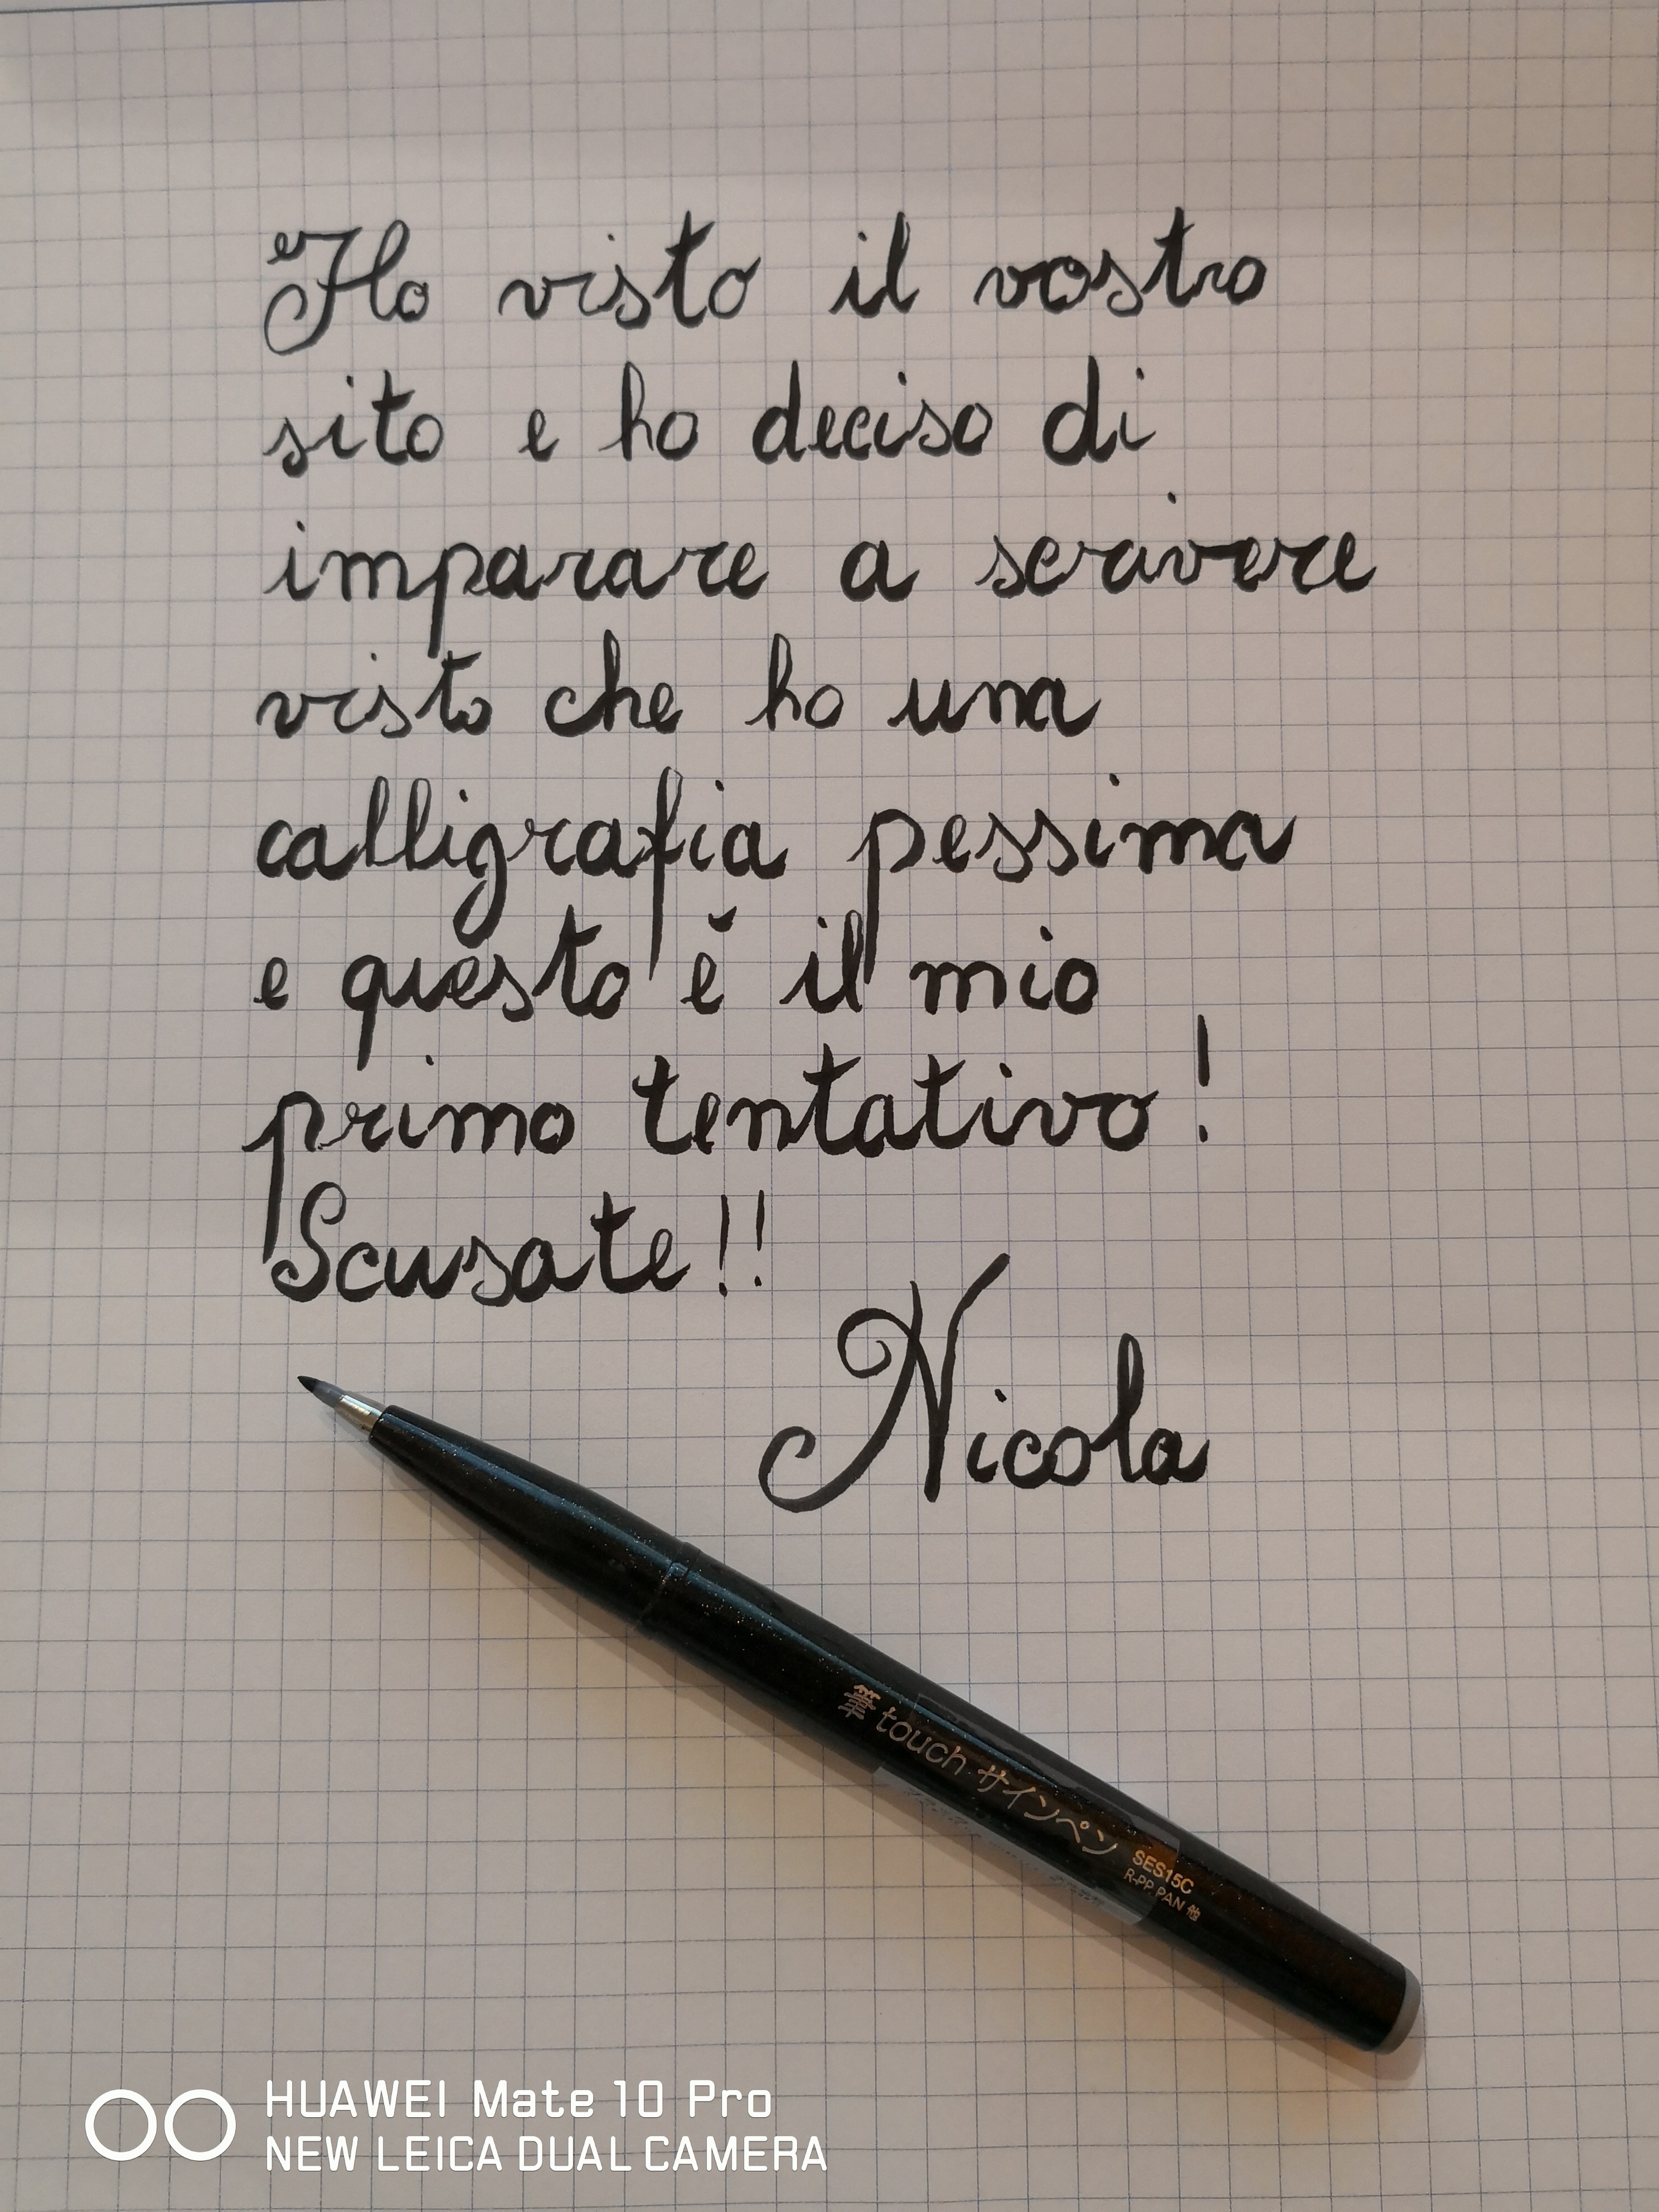 Ho visto il vostro
sito e ho deciso di
imparare a scrivere
visto che ho una
calligrafia pessima
e questo è il mio
primo tentativo!
Scusate!!
Nicola
筆touch サインペン
SES15C
R-PP, PAN 他
HUAWEI Mate 10 Pro
NEW LEICA DUAL CAMERA